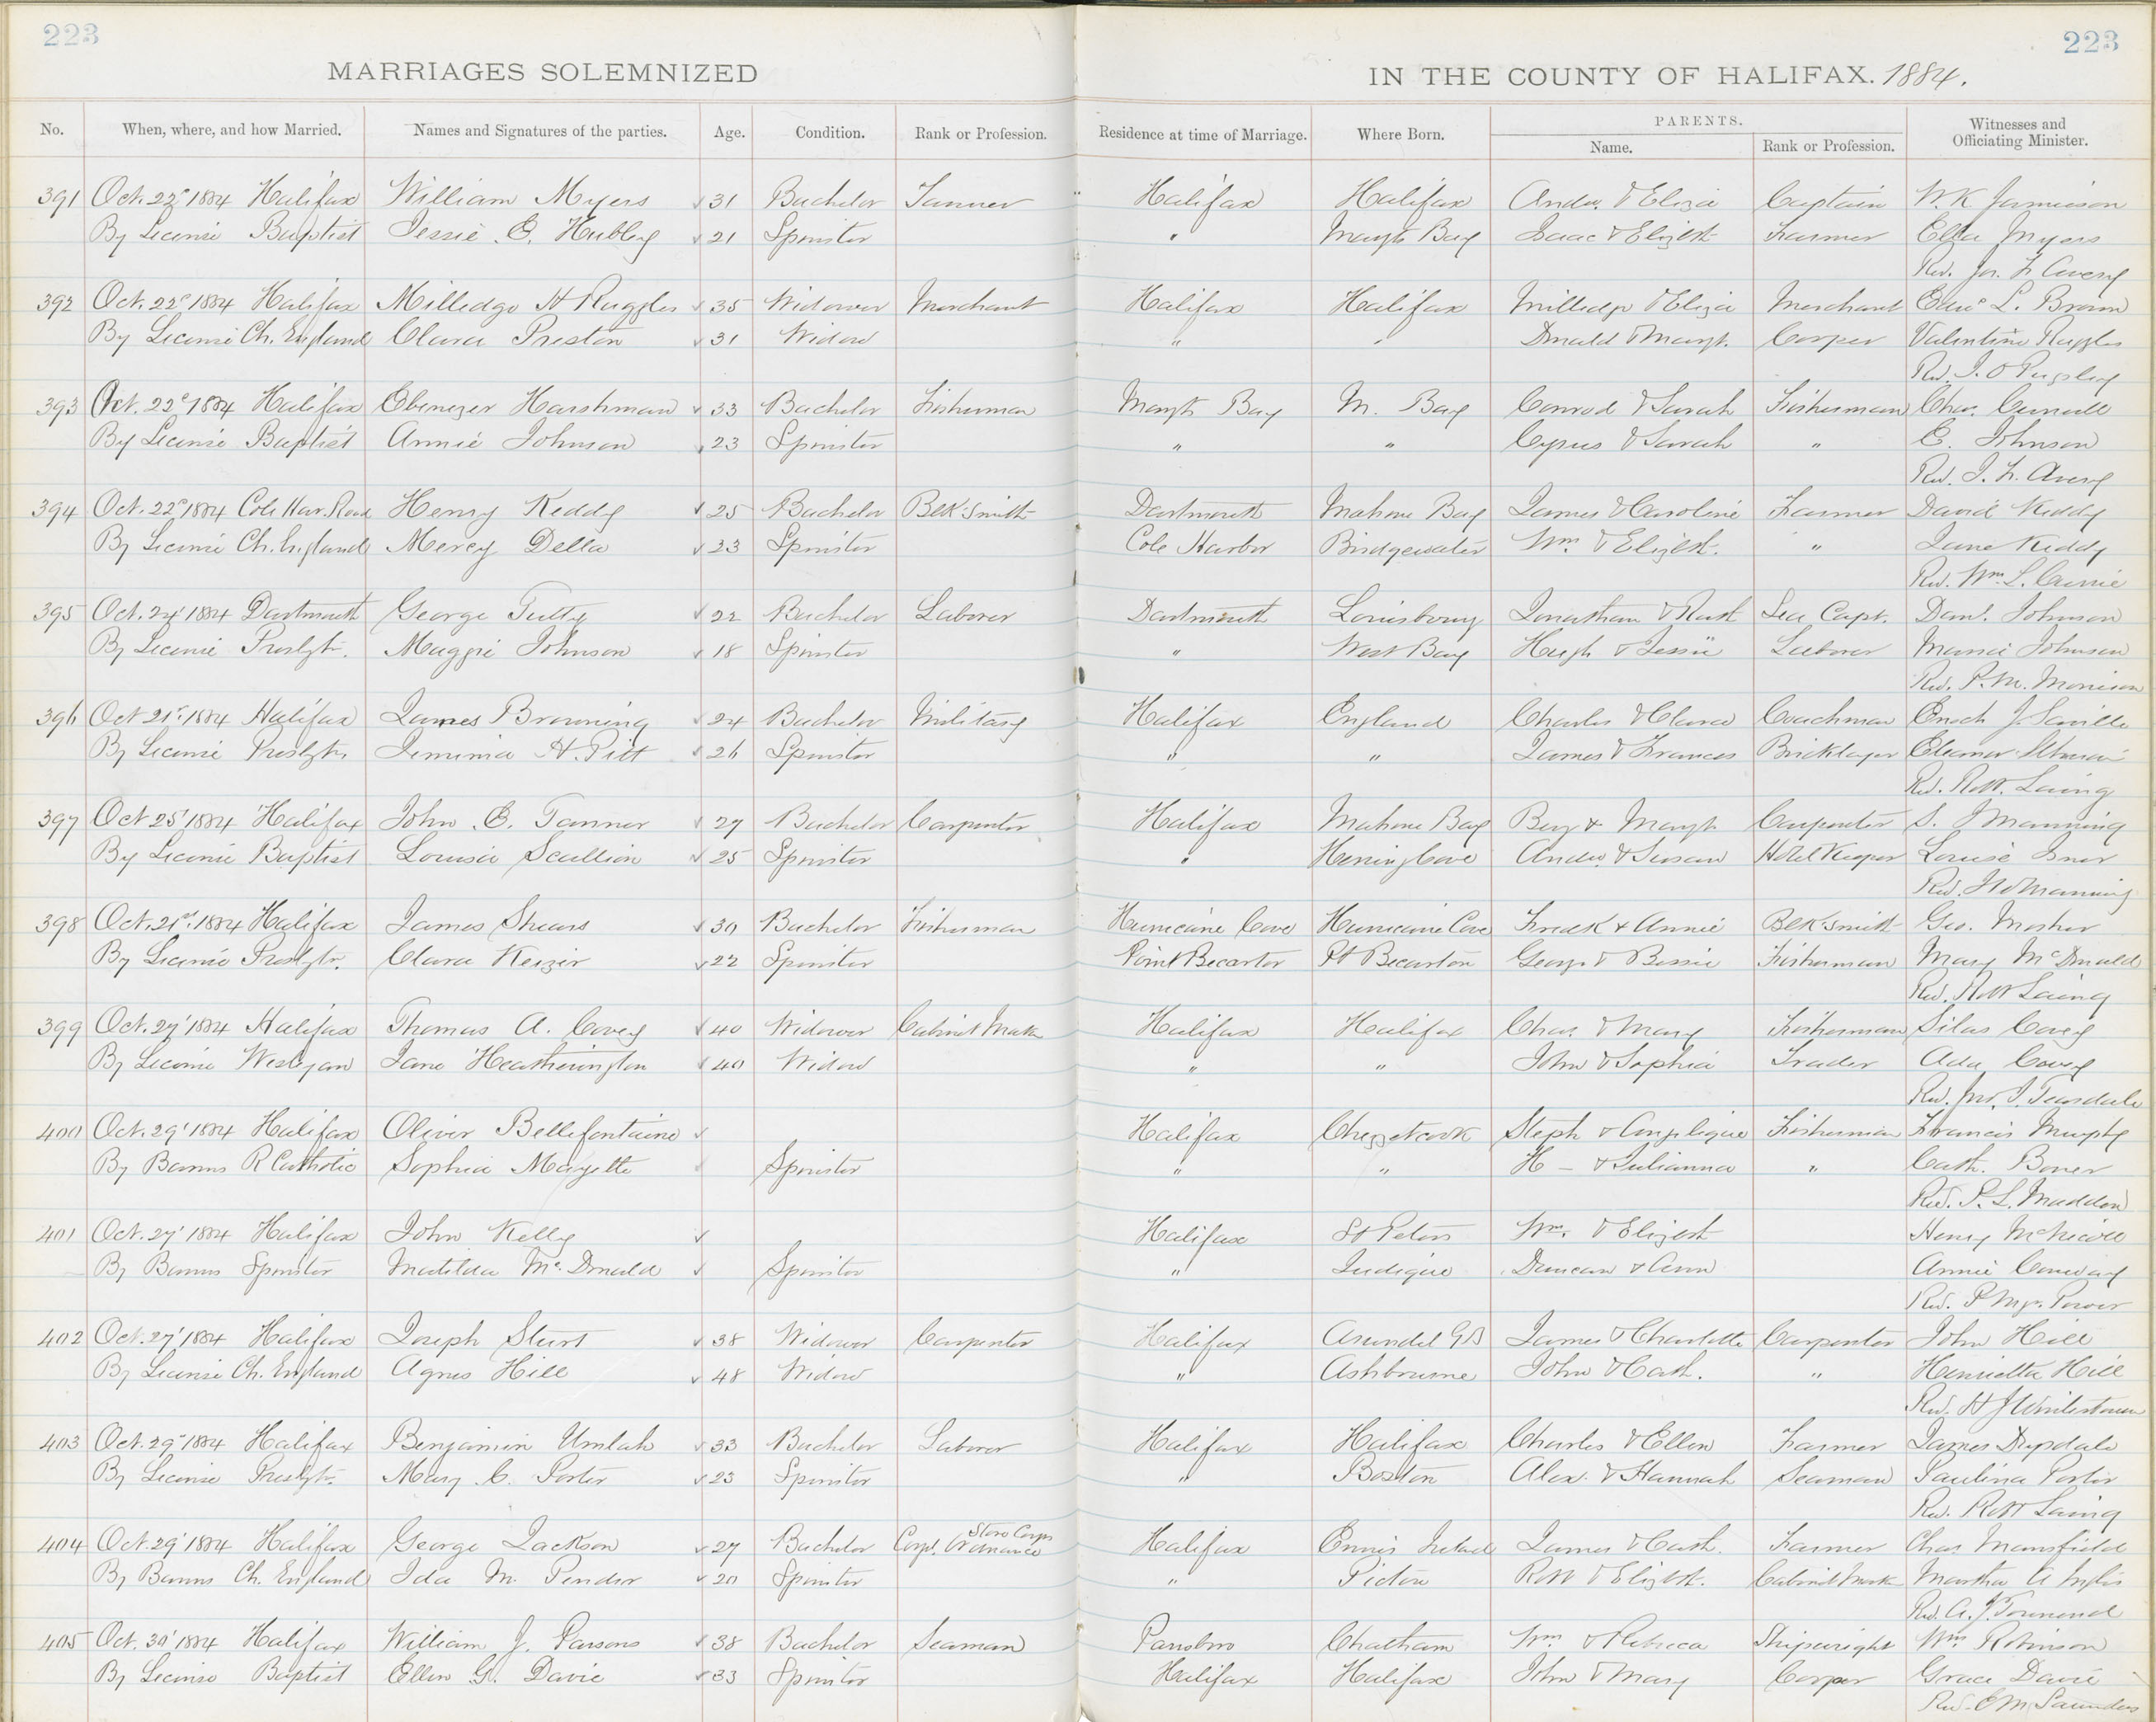 223 223
MARRIAGES SOLEMNIZED IN THE COUNTY OF HALIFAX. 1884.
No. When, where, and how Married. Names and Signatures of the parties. Age. Condition. Rank or Profession. Residence at time of Marriage. Where Born. PARENTS. Name. Rank or Profession. Witnesses and Officiating Minister.
391 Oct. 22d 1884 Halifax William Myers 31 Bachelor Tanner Halifax Halifax Andw. & Eliza Captain W. K. Jamieson
By License Baptist Jessie E. Hubley 21 Spinster " Margts Bay Isaac & Elizbt. Farmer Ella Myers
Rev. Jas. F. Avery
392 Oct. 22d 1884 Halifax Milledge H Ruggles 35 Widower Merchant Halifax Halifax Milledge & Eliza Merchant Edwd L. Brown
By License Ch. England Clara Preston 31 Widow " " Donald & Margt. Cooper Valentine Ruggles
Rev. Pugsley
393 Oct. 22d 1884 Halifax Ebenezer Harshman 33 Bachelor Fisherman Margts Bay M. Bay Conrod & Sarah Fisherman Chas.
By License Baptist Annie Johnson 23 Spinster " " Cyrus & Sarah " E. Johnson
Rev. J. F. Avery
394 Oct. 22d 1884 Cole Har. Road Henry Keddy 25 Bachelor BlkSmith Dartmouth Mahone Bay James & Caroline Farmer David Keddy
By License Ch. England Mercy Della 23 Spinster Cole Harbor Bridgewater Wm. & Elizbt. " Jane Keddy
Rev. Wm. L. Currie
395 Oct. 24' 1884 Dartmouth George Tutty 22 Bachelor Laborer Dartmouth Louisbourg Jonathan & Ruth Sea Capt. Danl. Johnson
By License Presbytr. Maggie Johnson 18 Spinster " West Bay Hugh & Jessie Laborer Johnson
Rev. P. M. Morrison
396 Oct 21st 1884 Halifax James Browning 24 Bachelor Military Halifax England Charles & Clara Coachman Enoch J. Saville
By License Presbytr. Jemima H. Pitt 26 Spinster " " James & Frances Bricklayer Eleanor
Rev. Robt. Laing
397 Oct 25' 1884 Halifax John E. Tanner 27 Bachelor Carpenter Halifax Mahone Bay Benj & Margt. Carpenter S. J Manning
By License Baptist Louisa Scallion 25 Spinster " Herring Cove Andw. & Susan Hotel Keeper Louise Isnor
Rev. Manning
398 Oct. 21st. 1884 Halifax James Shears 30 Bachelor Fisherman Hurricane Cove Hurricane Cove Fredk & Annie BlkSmith Geo. Mosher
By License Presbytr. Clara Keizer 22 Spinster Point Becarton Pt Becarton George & Bessie Fisherman Mary McDonald
Rev. Robt Laing
399 Oct. 27' 1884 Halifax Thomas A. Covey 40 Widower Cabinet Maker Halifax Halifax Chas. & Mary Fisherman Silas Covey
By License Wesleyan Jane Heatherington 40 Widow " " John & Sophia Trader Ada Covey
Rev. Jno. J. Teasdale
400 Oct. 29' 1884 Halifax Oliver Bellefontaine Halifax Chezzetcook Steph & Angelique Fisherman Francis Murphy
By Banns R Catholic Sophia Mayette Spinster " " H — & Julianna " Cath. Boner
Rev. P. L. Madden
401 Oct. 27' 1884 Halifax John Kelly Halifax St Peters Wm. & Elizbt Henry McNicoll
By Banns Spinster Matilda Mc. Donald Spinster " Judique Duncan & Ann Annie Conway
Rev. P Mgr. Power
402 Oct. 27' 1884 Halifax Joseph Sturt 38 Widower Carpenter Halifax Arundel G B James & Charlotte Carpenter John Hill
By License Ch. England Agnes Hill 48 Widow " Ashbourne John & Cath. " Henrietta Hill
Rev. H J Winterbourne
403 Oct. 29' 1884 Halifax Benjamin Umlah 33 Bachelor Laborer Halifax Halifax Charles & Ellen Farmer James Drysdale
By License Presbytr. Mary C. Porter 23 Spinster " Boston Alex. & Hannah Seaman Paulina Porter
Rev. Robt Laing
404 Oct. 29' 1884 Halifax George Jackson 27 Bachelor Corpl. Ordnance Store Corps Halifax Ennis Ireland James & Cath. Farmer Chas Mansfield
By Banns Ch. England Ida M. Pender 20 Spinster " Pictou Robt & Elizbt. Cabinet Maker Martha A Inglis
Rev. A. J. Townend
405 Oct. 30' 1884 Halifax William J. Parsons 38 Bachelor Seaman Parrsboro Chatham Wm. & Rebecca Shipwright Wm Robinson
By License Baptist Ellen G. Davie 33 Spinster Halifax Halifax John & Mary Cooper Grace Davie
Rev. E M Saunders